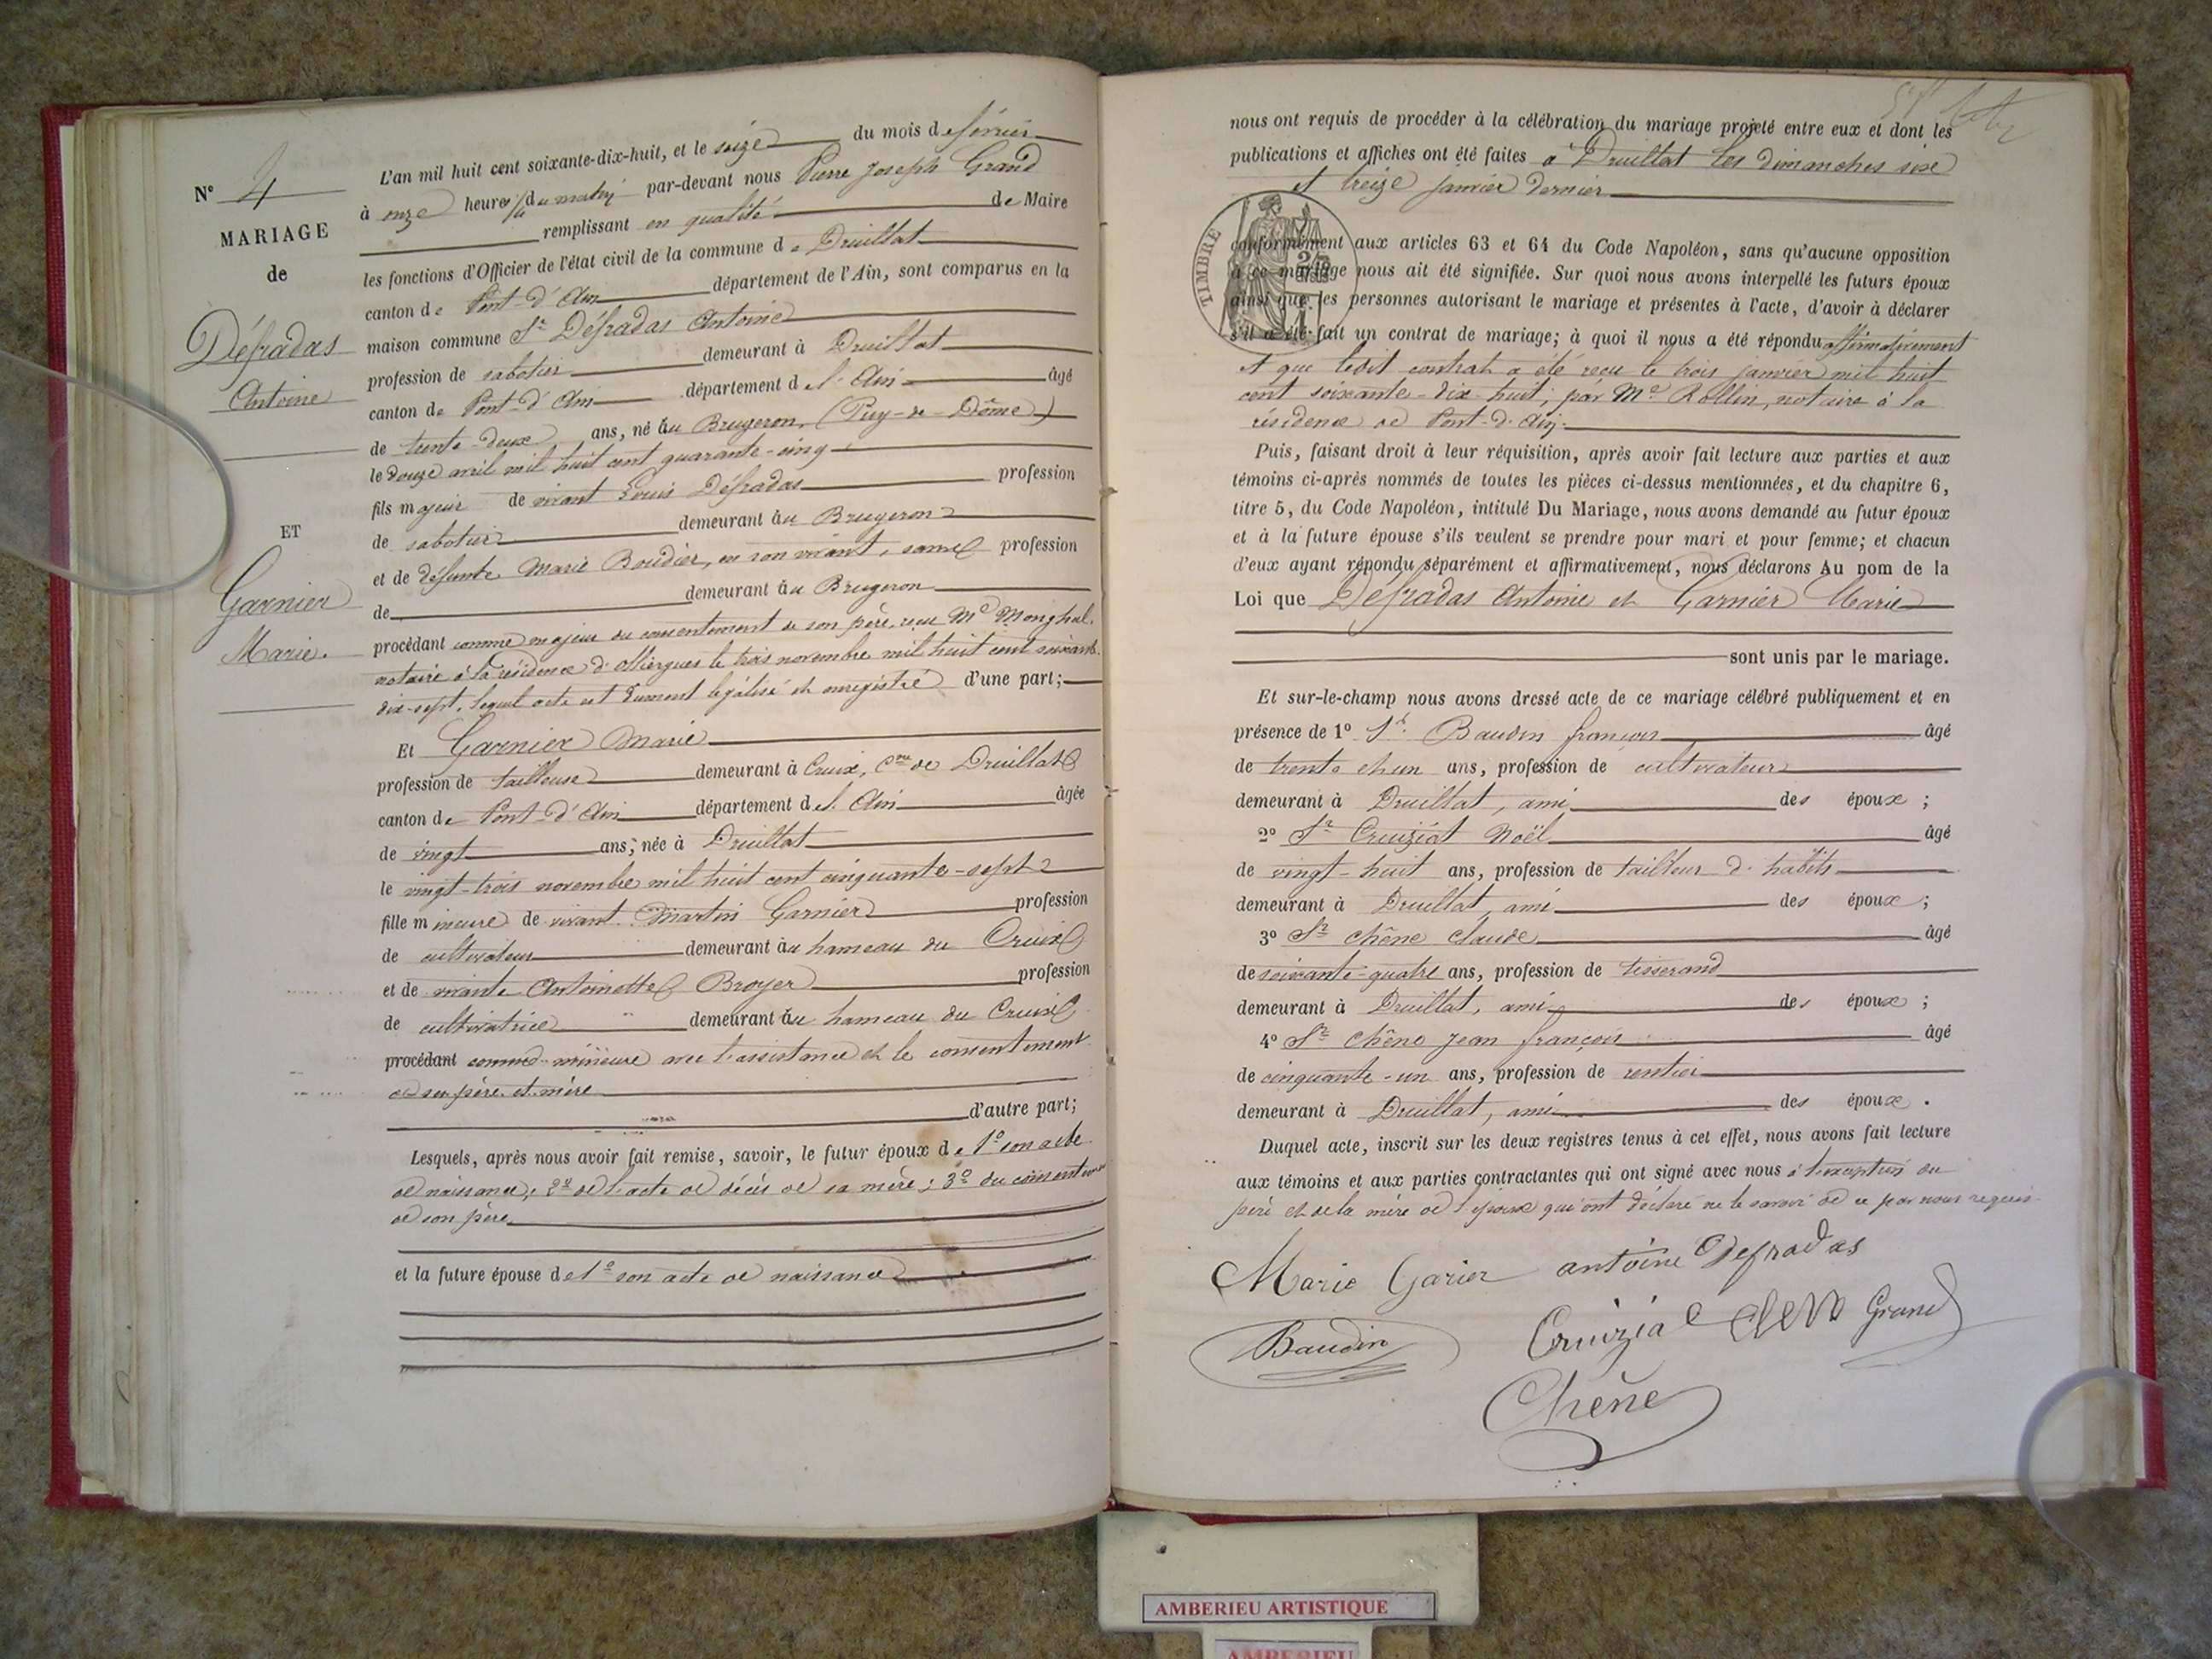 Nº 4
MARIAGE
de
Défradas
Antoine
ET
Garnier
Marie.
L'an mil huit cent soixante-dix-huit, et le seize du mois de février
à onze heures du matin par-devant nous Pierre Joseph Grand
remplissant en qualité de Maire
les fonctions d'Officier de l'état civil de la commune de Druillat
canton de Pont-d'Ain département de l'Ain, sont comparus en la
maison commune Sr Défradas Antoine
profession de sabotier demeurant à Druillat
canton de Pont-d'Ain département de l'Ain âgé
de trente-deux ans, né au Brugeron, (Puy-de-Dôme)
le douze avril mil huit cent quarante-cinq
fils majeur de vivant Louis Défradas profession
de sabotier demeurant au Brugeron
et de défunte Marie Boudier, en son vivant, sans profession
de demeurant au Brugeron
procédant comme majeur du consentement de son père, reçu Me
notaire à la résidence d'Olliergues le trois novembre mil huit cent soixante-
dix-sept, lequel acte est dument légalisé et enregistré d'une part;
Et Garnier Marie
profession de tailleuse demeurant à Cruix, Cne de Druillat
canton de Pont-d'Ain département de l'Ain âgée
de vingt ans, née à Druillat
le vingt-trois novembre mil huit cent cinquante-sept
fille mineure de vivant Martin Garnier profession
de cultivateur demeurant au hameau du Cruix
et de vivante Antoinette Broyer profession
de cultivatrice demeurant au hameau du Cruix
procédant comme mineure avec l'assistance et le consentement
de ses père et mère
d'autre part;
Lesquels, après nous avoir fait remise, savoir, le futur époux de 1º son acte
de naissance; 2º de l'acte de décès de sa mère; 3º du consentement
de son père
et la future épouse de 1º son acte de naissance
nous ont requis de procéder à la célébration du mariage projeté entre eux et dont les
publications et affiches ont été faites à Druillat les dimanches six
et treize janvier dernier
TIMBRE
conformément aux articles 63 et 64 du Code Napoléon, sans qu'aucune opposition
à ce mariage nous ait été signifiée. Sur quoi nous avons interpellé les futurs époux
ainsi que les personnes autorisant le mariage et présentes à l'acte, d'avoir à déclarer
s'il a été fait un contrat de mariage; à quoi il nous a été répondu affirmativement
et que ledit contrat a été reçu le trois janvier mil huit
cent soixante-dix-huit, par Me Rollin, notaire à la
résidence de Pont-d'Ain.
Puis, faisant droit à leur réquisition, après avoir fait lecture aux parties et aux
témoins ci-après nommés de toutes les pièces ci-dessus mentionnées, et du chapitre 6,
titre 5, du Code Napoléon, intitulé Du Mariage, nous avons demandé au futur époux
et à la future épouse s'ils veulent se prendre pour mari et pour femme; et chacun
d'eux ayant répondu séparément et affirmativement, nous déclarons Au nom de la
Loi que Défradas Antoine et Garnier Marie
sont unis par le mariage.
Et sur-le-champ nous avons dressé acte de ce mariage célébré publiquement et en
présence de 1º Sr. Baudin françois âgé
de trente et un ans, profession de cultivateur
demeurant à Druillat, ami des époux;
2º Sr Cruiziat Noël âgé
de vingt-huit ans, profession de tailleur d'habits
demeurant à Druillat, ami des époux;
3º Sr Chêne Claude âgé
de soixante-quatre ans, profession de tisserand
demeurant à Druillat, ami des époux;
4º Sr Chêne Jean françois âgé
de cinquante-un ans, profession de rentier
demeurant à Druillat, ami des époux.
Duquel acte, inscrit sur les deux registres tenus à cet effet, nous avons fait lecture
aux témoins et aux parties contractantes qui ont signé avec nous à l'exception du
père et de la mère de l'épouse qui ont déclaré ne le savoir de ce par nous requis
Marie Garier antoine Defradas
Baudin Cruizia Grand
Chêne
AMBERIEU ARTISTIQUE
AMBERIEU